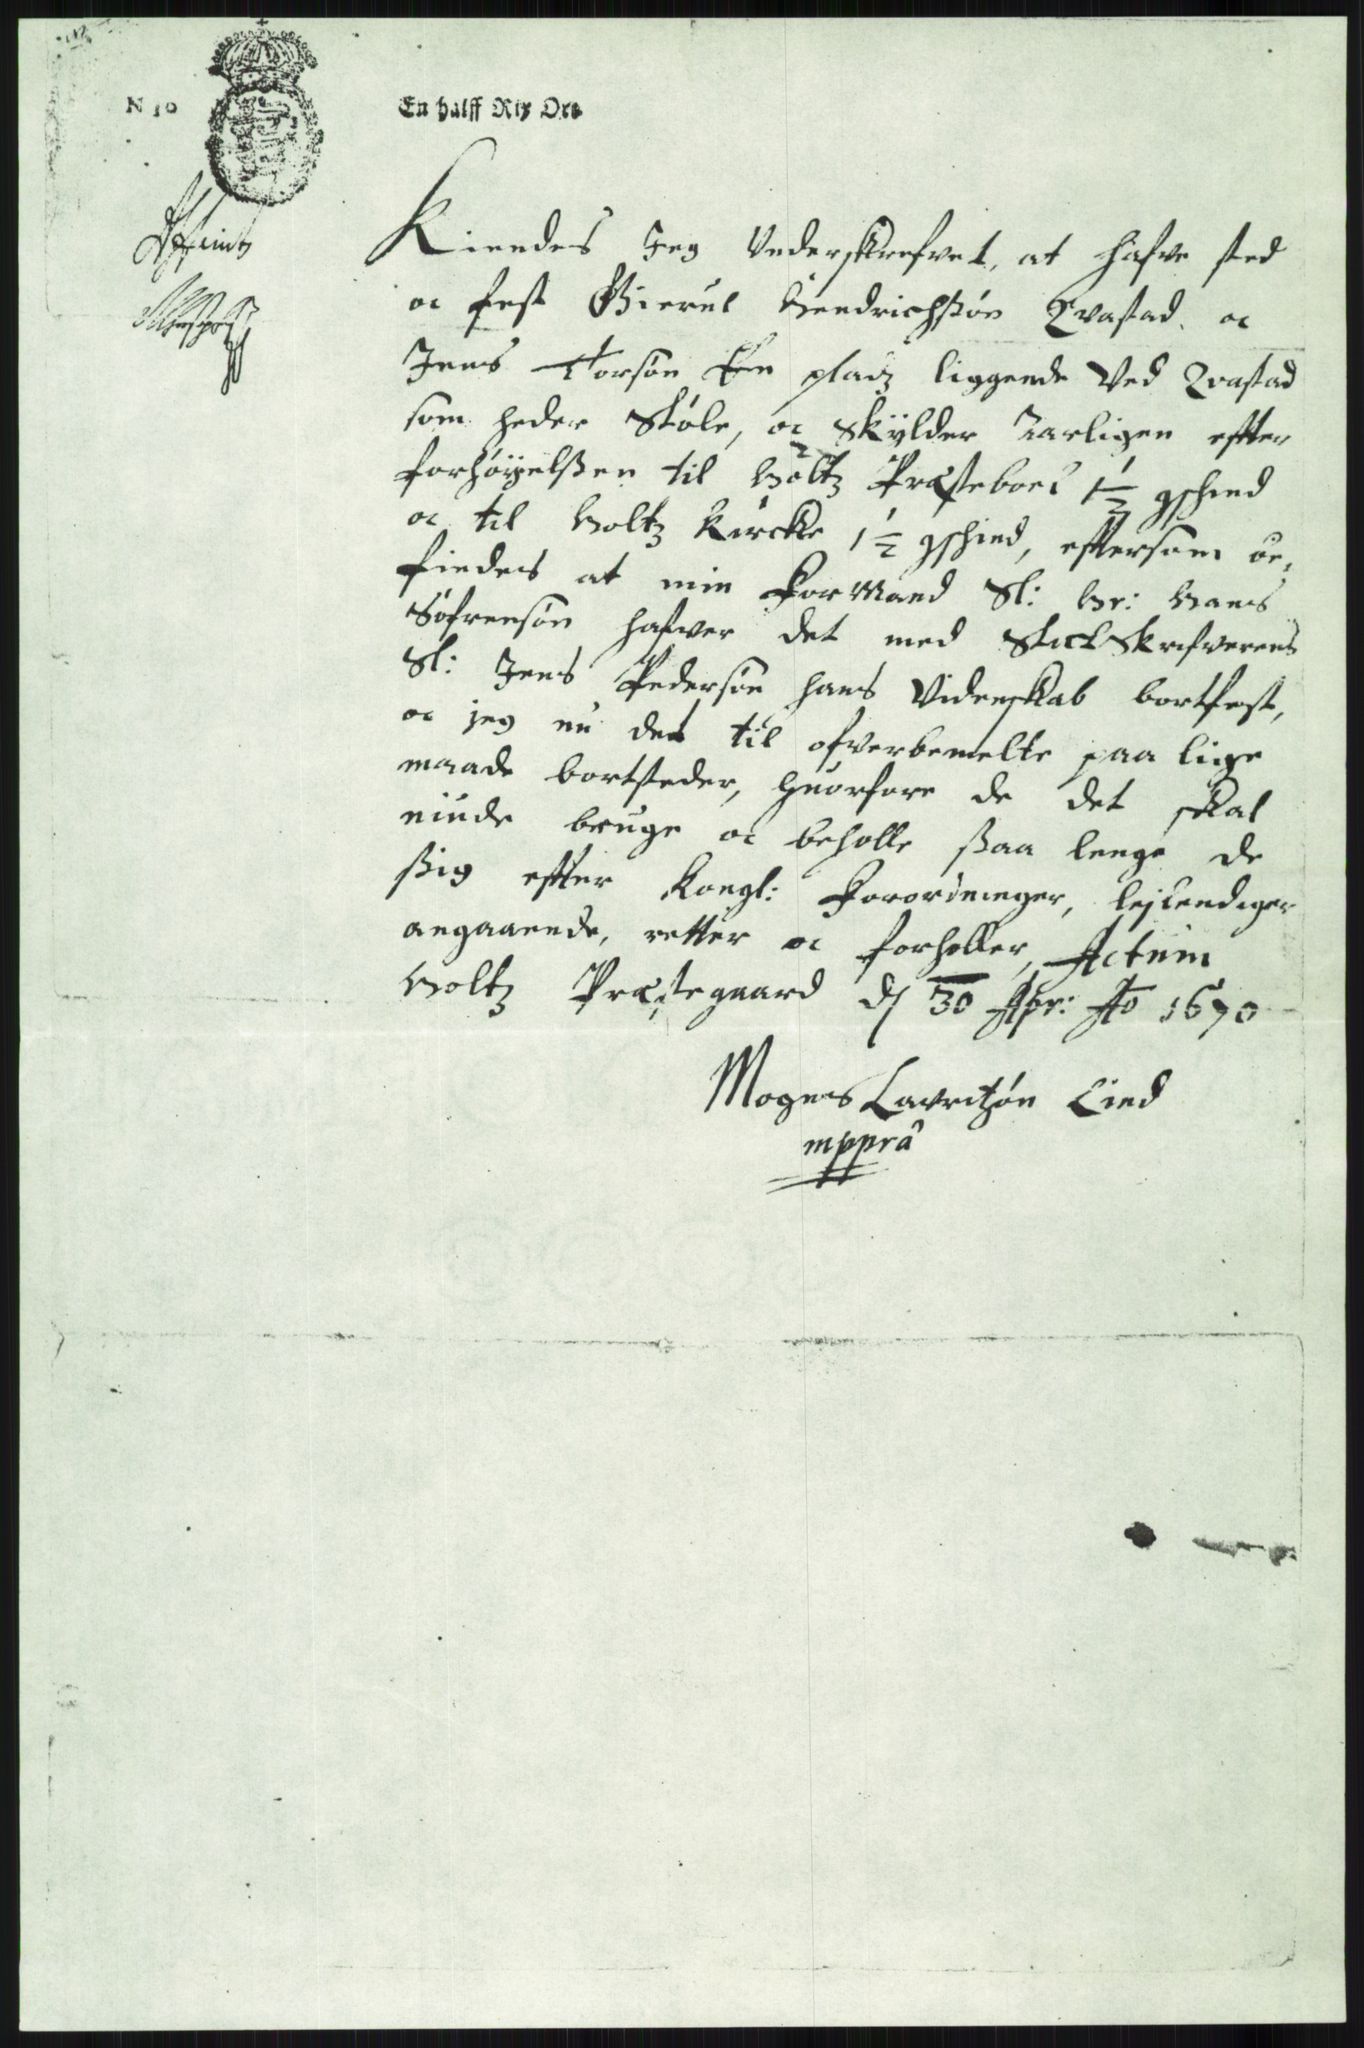 N 10
En halff Rix Ort
Kiendes Jeg Underskrefvet, at hafve sted
oc fest Gierul Hendrichßøn Qvastad oc
Jens Torsøn Een pladz liggende Ved Qvastad
som heder Støle, oc Skylder Aarligen effter
forhøyelßen til Holtz Præstebord 1½ gschind
oc til Holtz Kircke 1½ gschind, eftersom be,
findes at min ForMand Sl: Hr: Hans
Søfrensøn hafver det med StictSkrifverens
Sl: Jens Pedersøn hans Videnskab bortfest,
oc jeg nu det til ofverbemelte paa lige
maade bortsteder, huorfore de det skal
niude bruge oc beholle ßaa lenge de
ßig efter Kongl: Forordninger, lejlendiger
angaaende, retter oc forholler, Actum
Holtz Præstegaard dj 30 Apr: Ao 1670
Mogens Lavritzøn Lind
mppra